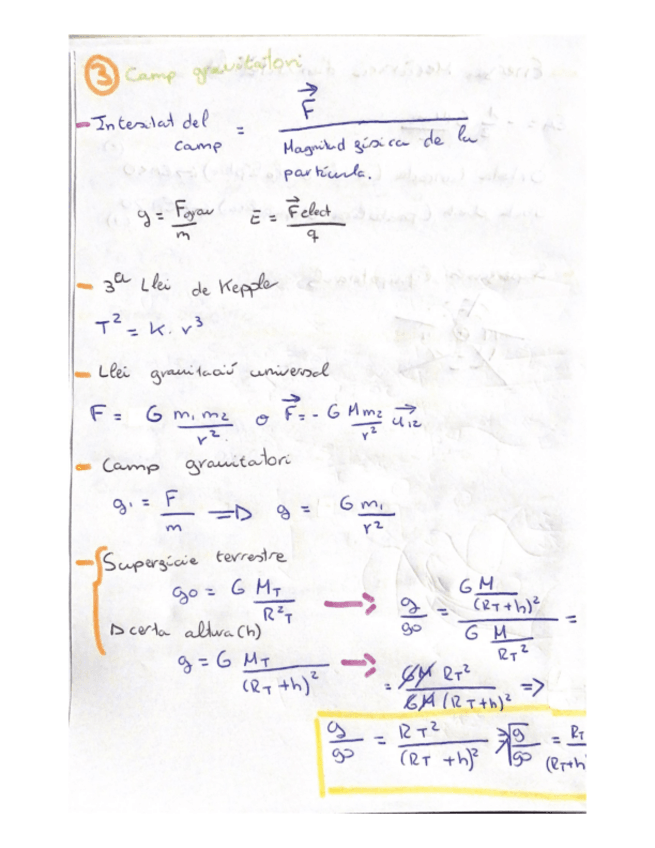 ③ Camp gravitatori
- Intesitat del camp = F⃗ / Magnitud física de la partícula.
g = Fgrav / m   E = F⃗elect / q
- 3ª Llei de Kepple
T² = K · r³
- Llei gravitació universal
F = G m₁ m₂ / r² o F⃗ = - G M m₂ / r² u⃗₁₂
- Camp gravitatori
g₁ = F / m => g = G m₁ / r²
- Superfície terrestre
g₀ = G M_T / R²_T → g / g₀ = (G M / (R_T + h)²) / (G M / R_T²) =
D certa altura (h)
g = G M_T / (R_T + h)² → = GM R_T² / GM (R_T + h)² =>
g / g₀ = R_T² / (R_T + h)² => √(g / g₀) = R_T / (R_T + h